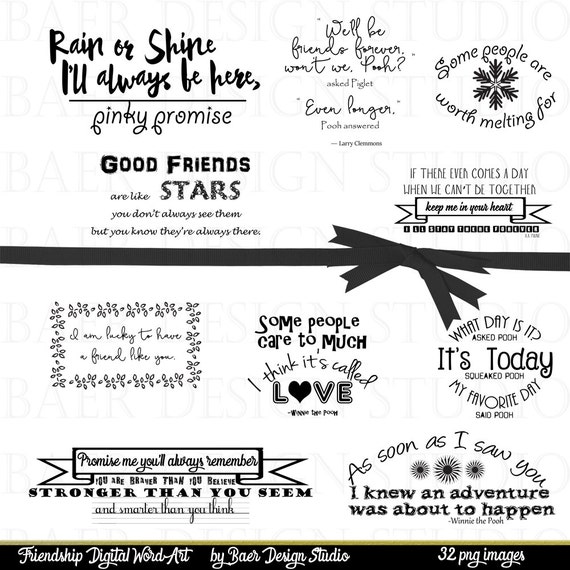 BAER DESIGN STUDIO
Rain or Shine
I'll always be here,
pinky promise
"We'll be
friends forever,
won't we, Pooh?"
asked Piglet
"Even longer,"
Pooh answered
— Larry Clemmons
Some people are
worth melting for
Good Friends
are like STARS
you don't always see them
but you know they're always there.
IF THERE EVER COMES A DAY
WHEN WE CAN'T BE TOGETHER
keep me in your heart
I'LL STAY THERE FOREVER
I am lucky to have
a friend like you.
Some people
care to much
I think it's called
LOVE
-Winnie the Pooh
WHAT DAY IS IT?
ASKED POOH
It's Today
SQUEAKED POOH
MY FAVORITE DAY
SAID POOH
Promise me you'll always remember
YOU ARE BRAVER THAN YOU BELIEVE
STRONGER THAN YOU SEEM
and smarter than you think
As soon as I saw you
I knew an adventure
was about to happen
-Winnie the Pooh
Friendship Digital Word-Art by Baer Design Studio 32 png images